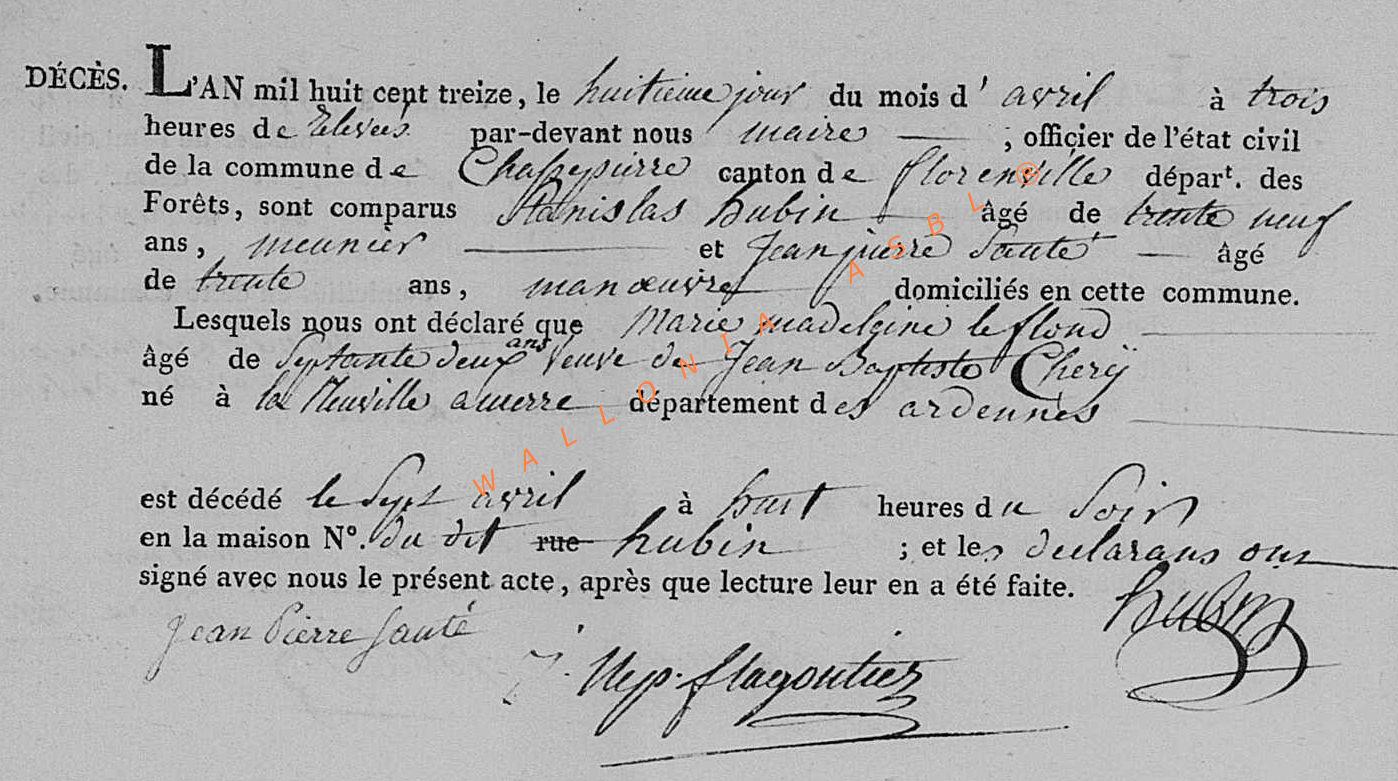 DÉCÈS. L'AN mil huit cent treize, le huitieme jour du mois d' avril à trois
heures de Relevées par-devant nous maire ; officier de l'état civil
de la commune de Chassepierre canton de florenville départ. des
Forêts, sont comparus Stanislas hubin âgé de trente neuf
ans, meunier et Jean pierre Sauté âgé
de trente ans, manœuvre domiciliés en cette commune.
Lesquels nous ont déclaré que Marie madeleine le flond
âgé de Septante deux ans veuve de Jean Baptiste Chery
né à la Neuville département des ardennes
est décédé le Sept avril à huit heures du Soir
en la maison N°. du dit rue hubin ; et les declarans ont
signé avec nous le présent acte, après que lecture leur en a été faite.
hubin
Jean Pierre Sauté
J. Nep. flagontier
WALLONIA ASBL ®